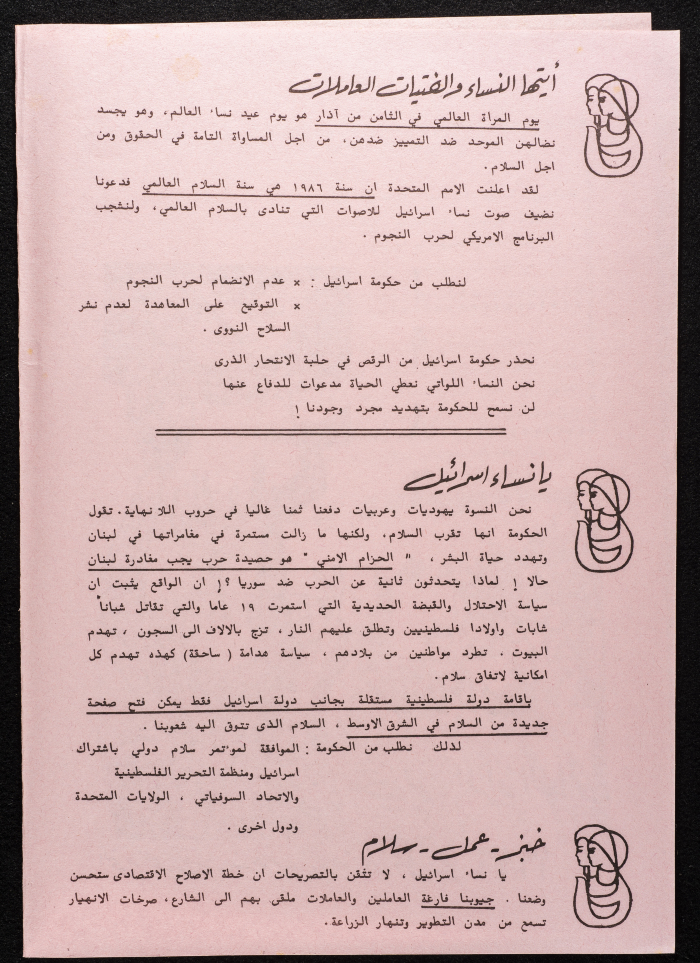 أيتها النساء والفتيات العاملات
يوم المرأة العالمي في الثامن من آذار هو يوم عيد نساء العالم، وهو يجسد
نضالهن الموحد ضد التمييز ضدهن، من اجل المساواة التامة في الحقوق ومن
اجل السلام.
لقد اعلنت الامم المتحدة ان سنة ١٩٨٦ هي سنة السلام العالمي فدعونا
نضيف صوت نساء اسرائيل للاصوات التي تنادى بالسلام العالمي، ولنشجب
البرنامج الامريكي لحرب النجوم .
لنطلب من حكومة اسرائيل : × عدم الانضمام لحرب النجوم
× التوقيع على المعاهدة لعدم نشر
السلاح النووى .
نحذر حكومة اسرائيل من الرقص في حلبة الانتحار الذرى
نحن النساء اللواتي نعطي الحياة مدعوات للدفاع عنها
لن نسمح للحكومة بتهديد مجرد وجودنا !
يا نساء اسرائيل
نحن النسوة يهوديات وعربيات دفعنا ثمنا غاليا في حروب اللا نهاية. تقول
الحكومة انها تقرب السلام، ولكنها ما زالت مستمرة في مغامراتها في لبنان
وتهدد حياة البشر ، " الحزام الامني " هو حصيدة حرب يجب مغادرة لبنان
حالا ! لماذا يتحدثون ثانية عن الحرب ضد سوريا ؟! ان الواقع يثبت ان
سياسة الاحتلال والقبضة الحديدية التي استمرت ١٩ عاما والتي تقاتل شباناً
شابات واولادا فلسطينيين وتطلق عليهم النار ، تزج بالالاف الى السجون ، تهدم
البيوت . تطرد مواطنين من بلادهم ، سياسة هدامة ( ساحقة) كهذه تهدم كل
امكانية لاتفاق سلام.
باقامة دولة فلسطينية مستقلة بجانب دولة اسرائيل فقط يمكن فتح صفحة
جديدة من السلام في الشرق الاوسط ، السلام الذى تتوق اليه شعوبنا .
لذلك نطلب من الحكومة : الموافقة لموءتمر سلام دولي باشتراك
اسرائيل ومنظمة التحرير الفلسطينية
والاتحاد السوفياتي ، الولايات المتحدة
ودول اخرى .
خبز - عمل - سلام
يا نساء اسرائيل ، لا تثقن بالتصريحات ان خطة الاصلاح الاقتصادى ستحسن
وضعنا . جيوبنا فارغة العاملين والعاملات ملقى بهم الى الشارع، صرخات الانهيار
تسمع من مدن التطوير وتنهار الزراعة.